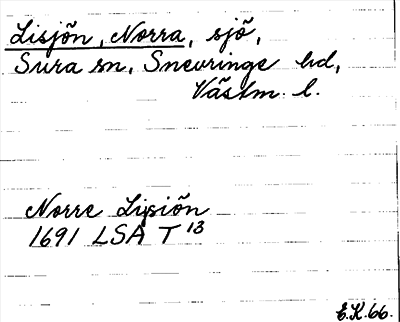 Lisjön, Norra, sjö,
Sura sn, Snevringe hd,
Västm. l.
Norre Lisiön
1691 LSA T 13
E.K. 66.